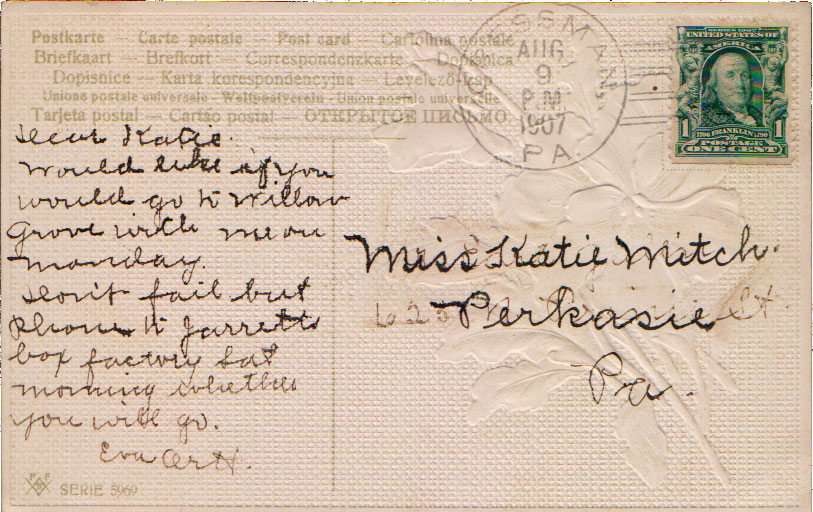 Postkarte — Carte postale — Post card — Cartolina postale
Briefkaart — Brefkort — Correspondenzkarte — Dopisnica
Dopisnice — Karta korespondencyjna — Levelező-lap
Unione postale universale — Weltpostverein — Union postale universelle
Tarjeta postal — Cartão postal — ОТКРЫТОЕ ПИСЬМО
ESSMAN
AUG
9
P.M.
1907
PA.
SERIES 1902
UNITED STATES OF
AMERICA
1 FRANKLIN 1
POSTAGE
ONE CENT
Dear Katie.
Would like if you
would go to Willow
Grove with me on
Monday.
Don't fail but
Phone to Jarretts
box factory Sat
morning whether
you will go.
Eva
Miss Katie Mitch.
Perkasie
Pa.
SERIE 5969